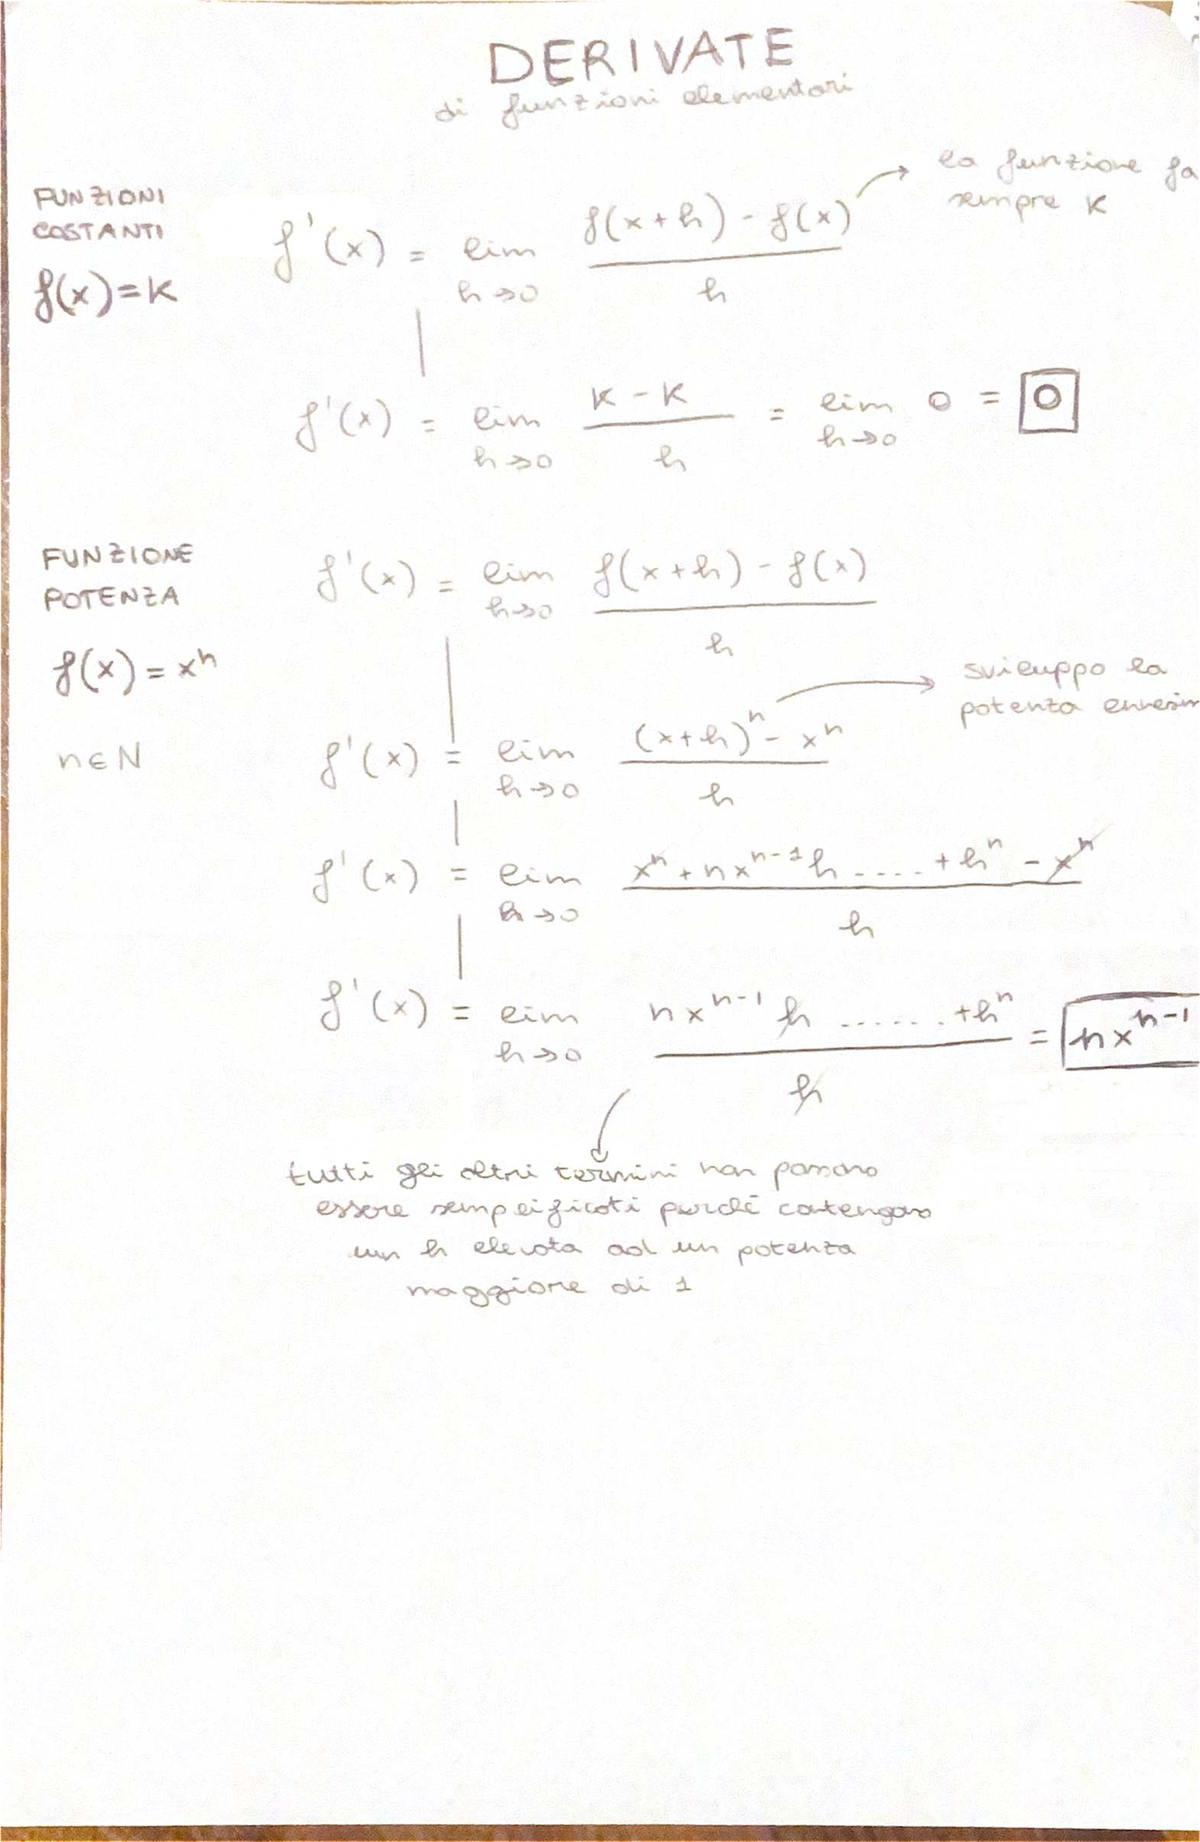 DERIVATE
di funzioni elementari
la funzione fa
sempre K
FUNZIONI
COSTANTI
f(x)=K
f'(x) = lim h→0 f(x+h) - f(x) / h
f'(x) = lim h→0 K - K / h = lim h→0 0 = 0
FUNZIONE
POTENZA
f(x) = xⁿ
n∈N
f'(x) = lim h→0 f(x+h) - f(x) / h
sviluppo la
potenza
f'(x) = lim h→0 (x+h)ⁿ - xⁿ / h
f'(x) = lim h→0 xⁿ + nxⁿ⁻¹h ..... + hⁿ - xⁿ / h
f'(x) = lim h→0 nxⁿ⁻¹ h ...... + hⁿ / h = nxⁿ⁻¹
tutti gli altri termini non possono
essere semplificati perché contengono
un h elevata ad un potenza
maggiore di 1